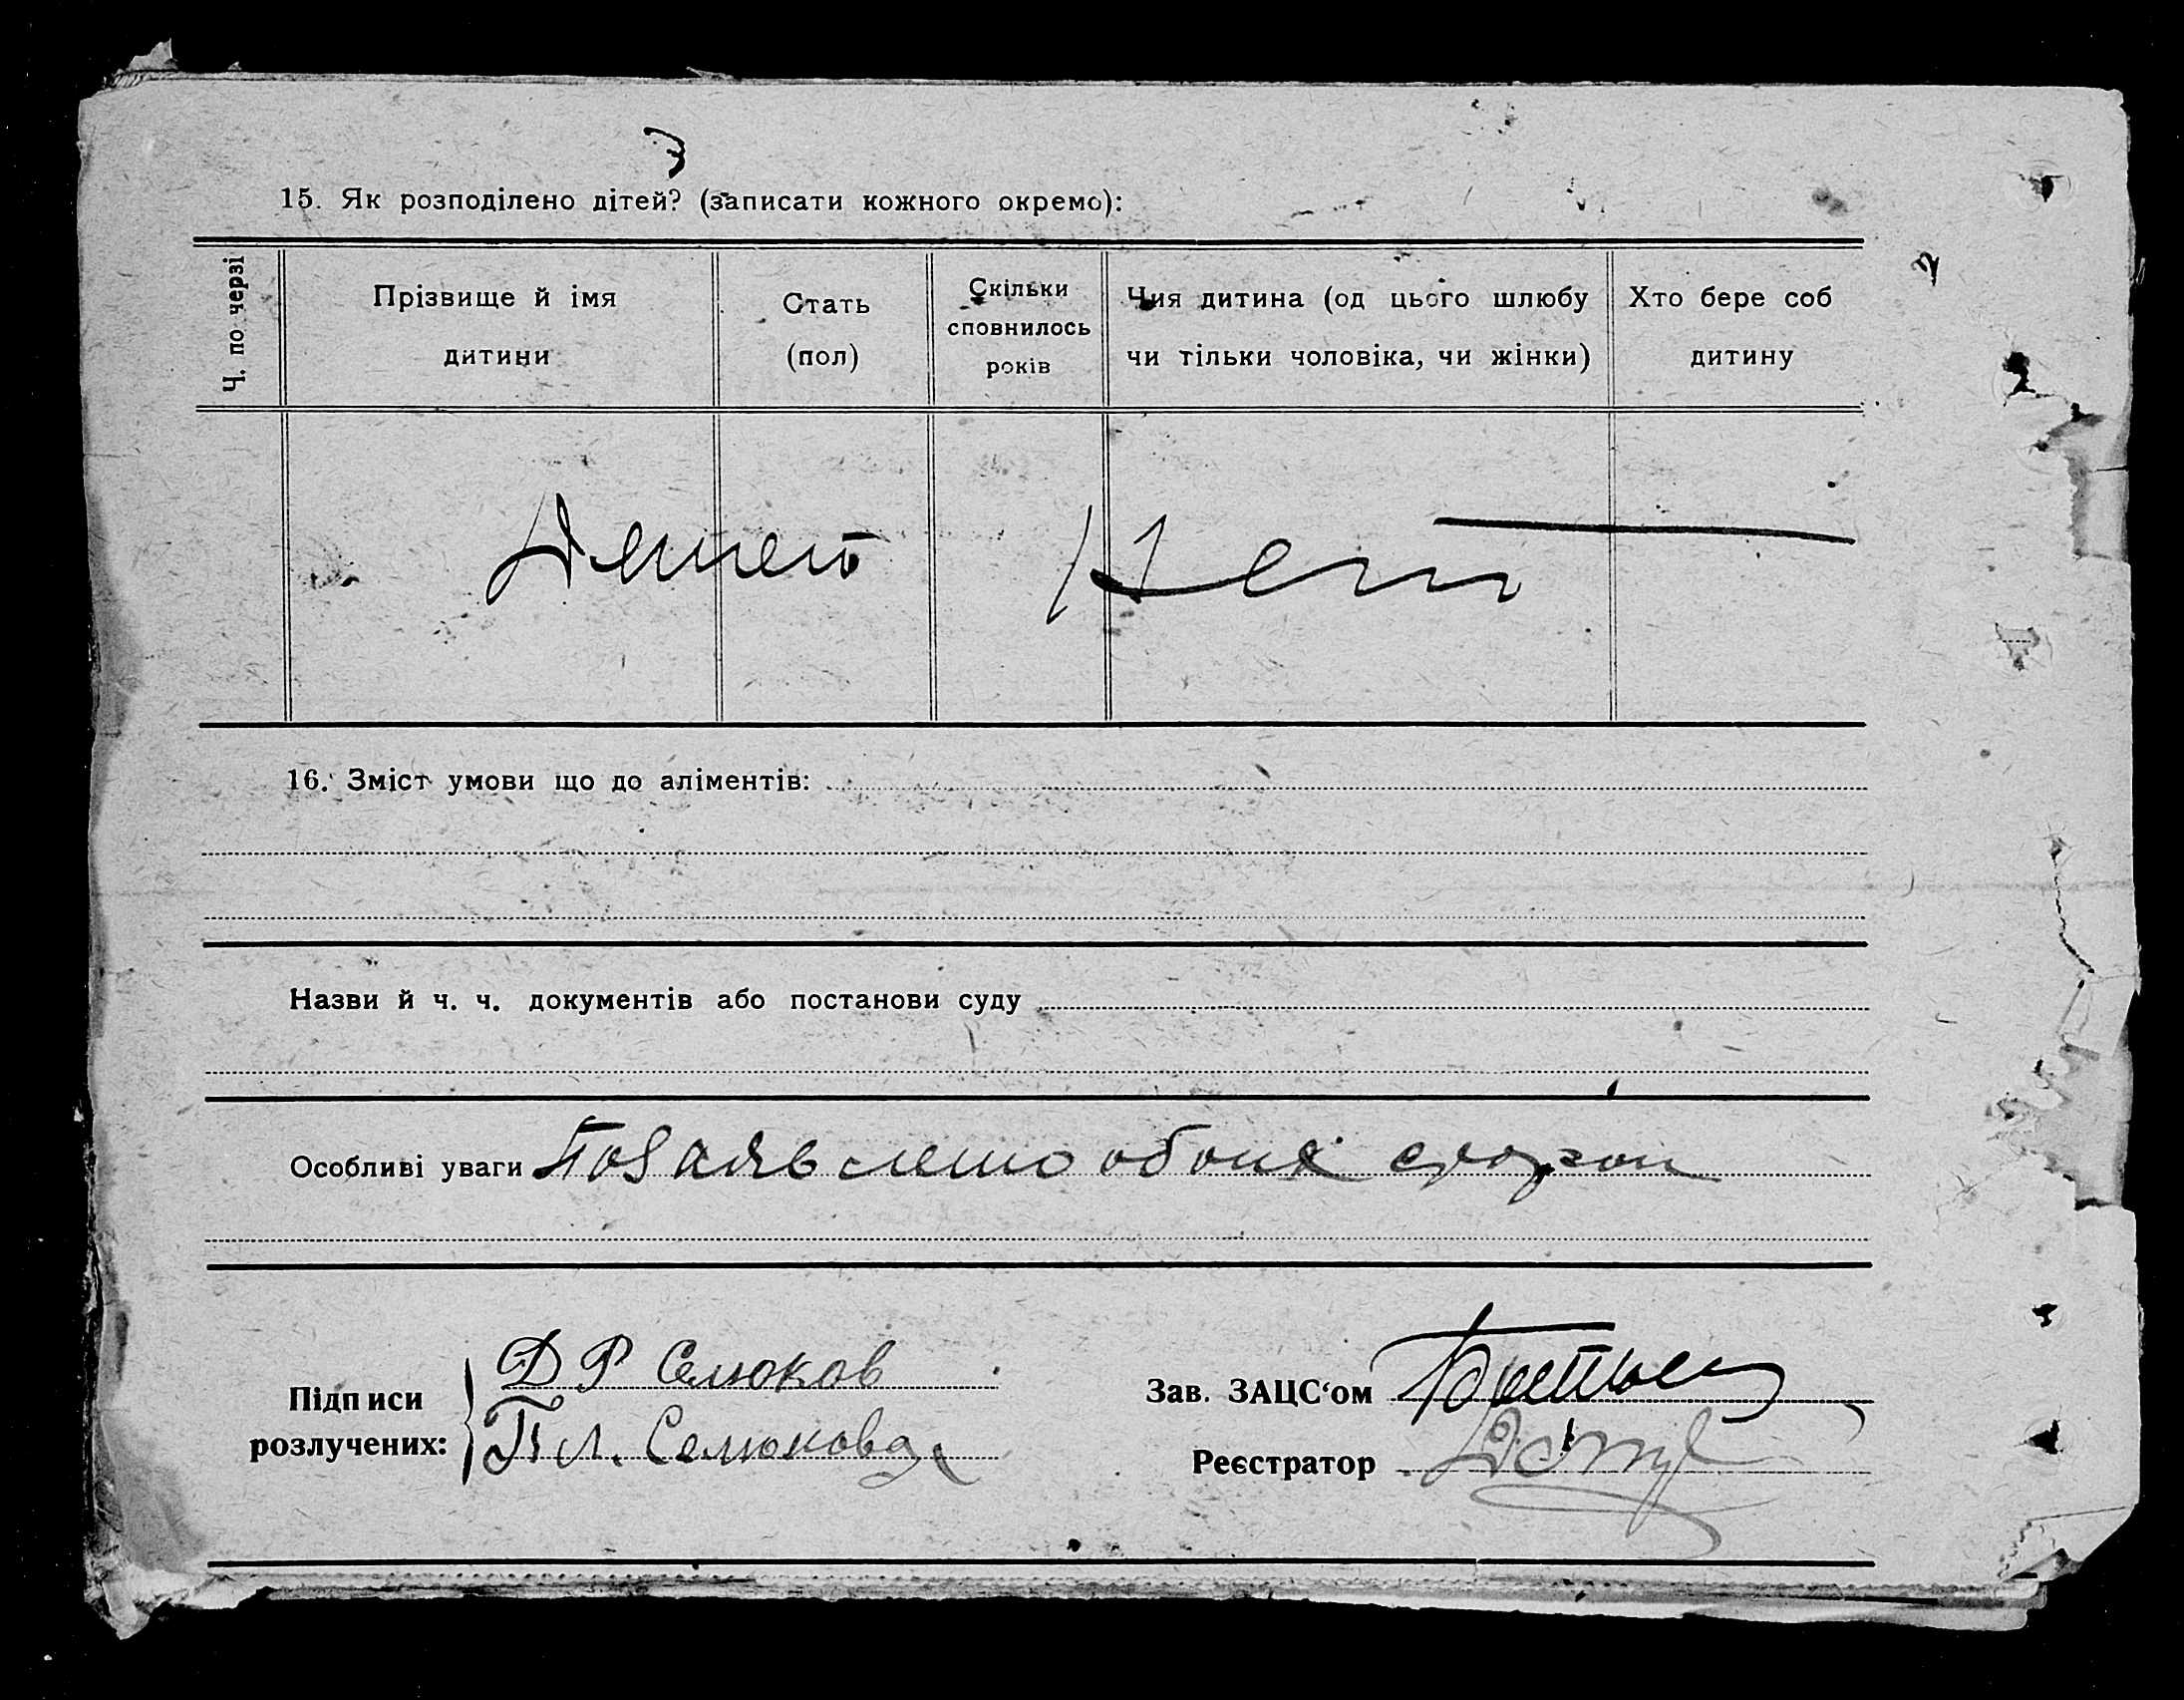 3
15. Як розподілено дітей? (записати кожного окремо):
2
Ч. по черзі
Прізвище й імя дитини
Стать (пол)
Скільки сповнилось років
Чия дитина (од цього шлюбу чи тільки чоловіка, чи жінки)
Хто бере соб дитину
Детей Нет
16. Зміст умови що до аліментів:
Назви й ч. ч. документів або постанови суду
Особливі уваги По заявлению обоих сторон
Підписи розлучених:
Д Р Селюков
П Л. Селюкова
Зав. ЗАЦС‘ом
Реєстратор